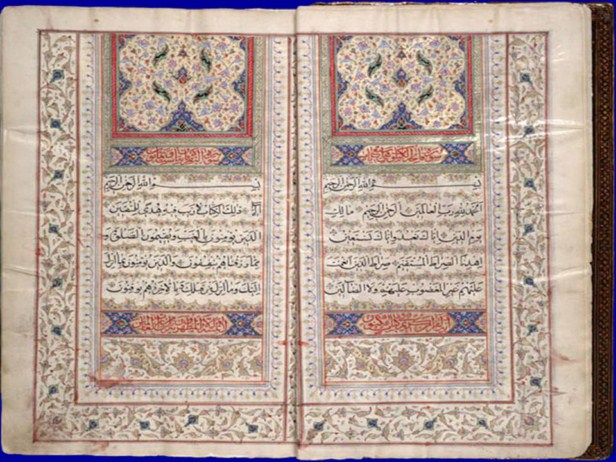 بسم الله الرحمن الرحيم
الحمد لله رب العالمين الرحمن الرحيم مالك
يوم الدين اياك نعبد واياك نستعين
اهدنا الصراط المستقيم صراط الذين انعمت
عليهم غير المغضوب عليهم ولا الضالين
بسم الله الرحمن الرحيم
الم ذلك الكتاب لا ريب فيه هدى للمتقين
الذين يؤمنون بالغيب ويقيمون الصلوة و
مما رزقناهم ينفقون والذين يؤمنون بما انزل
اليك وما انزل من قبلك وبالاخرة هم يوقنون